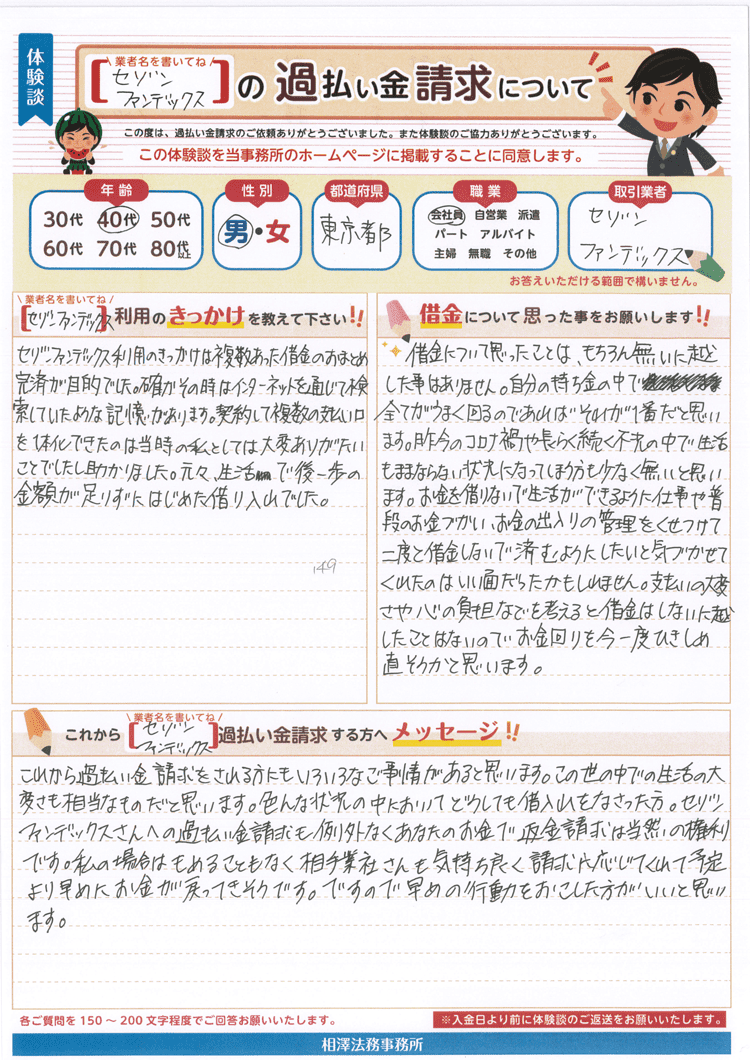 体験談
業者名を書いてね
[セゾン
ファンデックス]の 過払い金 請求について
この度は、過払い金請求のご依頼ありがとうございました。また体験談のご協力ありがとうございます。
この体験談を当事務所のホームページに掲載することに同意します。
年齢
30代 40代 50代
60代 70代 80代以上
性別
男・女
都道府県
東京都
職業
会社員 自営業 派遣
パート アルバイト
主婦 無職 その他
取引業者
セゾン
ファンデックス
お答えいただける範囲で構いません。
業者名を書いてね
[セゾンファンデックス]利用のきっかけを教えて下さい!!
セゾンファンデックス利用のきっかけは複数あった借金のおまとめ
完済が目的でした。確かその時はインターネットを通じて検
索していたような記憶があります。契約して複数の支払い口
を1体化できたのは当時の私としては大変ありがたい
ことでしたし助かりました。元々、生活 で後一歩の
金額が足りずにはじめた借り入れでした。
149
借金について思った事をお願いします!!
借金について思ったことは、もちろん無いに越
した事はありません。自分の持ち金の中で
全てがうまく回るのであればそれが1番だと思い
ます。昨今のコロナ禍や長らく続く不況の中で生活
もままならない状況になってしまう方も少なく無いと思い
ます。お金を借りないで生活ができるように仕事や普
段のお金づかい、お金の出入りの管理をくせつけて
二度と借金しないで済むようにしたいと気づかせて
くれたのはいい面だったかもしれません。支払いの大変
さや心の負担などを考えると借金はしないに越
したことはないのでお金回りを今一度ひきしめ
直そうかと思います。
業者名を書いてね
これから[セゾン
ファンデックス]過払い金請求する方へメッセージ!!
これから過払い金請求をされる方にもいろいろなご事情があると思います。この世の中での生活の大
変さも相当なものだと思います。色んな状況の中においてどうしても借入れをなさった方。セゾン
ファンデックスさんへの過払い金請求も例外なくあなたのお金で返金請求は当然の権利
です。私の場合はもめることもなく相手業社さんも気持ち良く請求に応じてくれて予定
より早めにお金が戻ってきそうです。ですので早めの行動をおこした方がいいと思い
ます。
各ご質問を150～200文字程度でご回答お願いいたします。
※入金日より前に体験談のご返送をお願いいたします。
相澤法務事務所